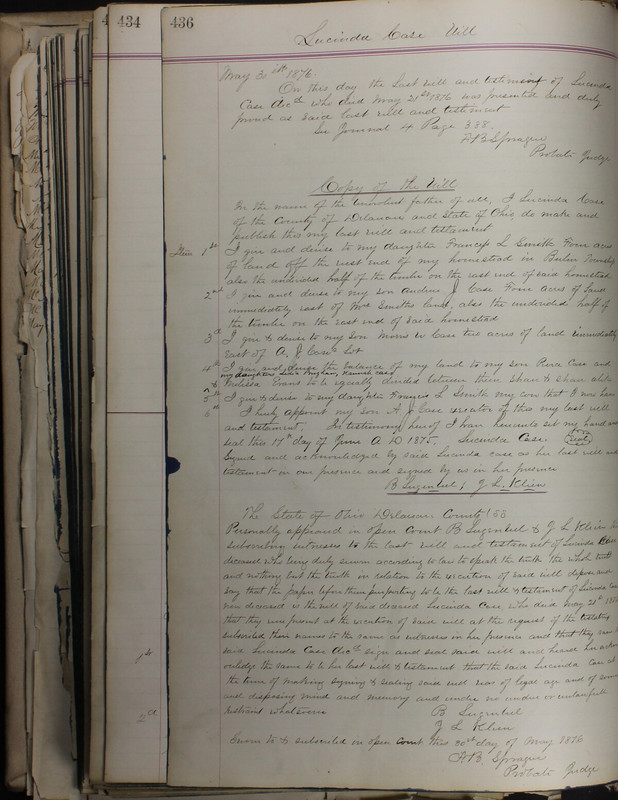 434
436
Lucinda Case Will
May 30 1876.
On this day the last will and testament of Lucinda
Case decd who died May 21st 1876 was presented and duly
proved as said last will and testament
See Journal 4 Page 388.
F.B. Sprague
Probate Judge
Copy of the Will
In the name of the benevolent father of all, I Lucinda Case
of the County of Delaware and State of Ohio do make and
publish this my last will and testament
Item 1st I give and devise to my daughter Francis L Smith Four acres
of land off the west end of my homestead in Berlin Township
also the undivided half of the timber on the east end of said homestead
2nd I give and devise to my son Andrew J Case Four acres of land
immediately east of Smiths land, also the undivided half of
the timber on the east end of said homestead
3d I give & devise to my son Morris W Case two acres of land immediately
east of A. J Case Lot
4th I give and devise the balance of my land to my son Case and
my daughters Case
& Melissa Evans to be equally divided between them share & share alike
5th I give & devise to my daughter Francis L Smith my cow that I now have
6th I hereby appoint my son A J Case executor of this my last will
and testament. In testimony hereof I have hereunto set my hand and
seal this 17th day of June A D 1875. Lucinda Case
Seal
Signed and acknowledged by said Lucinda Case as her last will and
testament in our presence and signed by us in her presence
B Lugenbeel & J. L. Klien
The State of Ohio Delaware County SS
Personally appeared in open Court B Lugenbeel & J L Klien
subscribing witnesses to the last will and testament of Lucinda Case
deceased who being duly sworn according to law to speak the truth the whole truth
and nothing but the truth in relation to the execution of said will depose and
say that the paper before them purporting to be the last will & testament of Lucinda Case
now deceased is the will of said deceased Lucinda Case, who died May 21st
that they were present at the execution of said will at the request of the testatrix
subscribed their names to the same as witnesses in her presence and that they
said Lucinda Case decd sign and seal said will and heard her
the same to be her last will & testament that the said Lucinda Case at
the time of making signing & sealing said will was of legal age and of sound
and disposing mind and memory and under no undue or unlawful
restraint whatsoever
B Lugenbeel
J L Klien
Sworn to & subscribed in open Court this 30th day of May 1876
F.B. Sprague
Probate Judge
1st
2d